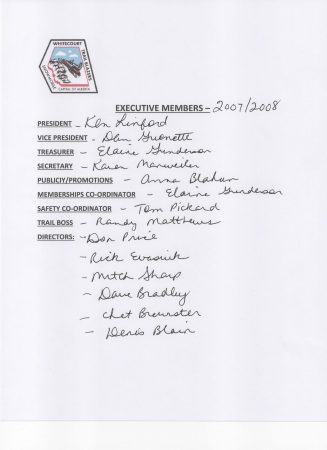 WHITECOURT
TRAIL BLAZERS
EXECUTIVE MEMBERS – 2007/2008
PRESIDENT - Ken Linford
VICE PRESIDENT - Dan
TREASURER - Elaine Gunderson
SECRETARY - Karen Manweiler
PUBLICIY/PROMOTIONS - Anna Blahun
MEMBERSHIPS CO-ORDINATOR - Elaine Gunderson
SAFETY CO-ORDINATOR - Tom Pickard
TRAIL BOSS - Randy Matthews
DIRECTORS: - Don Price
- Rick
- Mitch Sharp
- Dave Bradley
- Chet Brewster
- Denis Blain